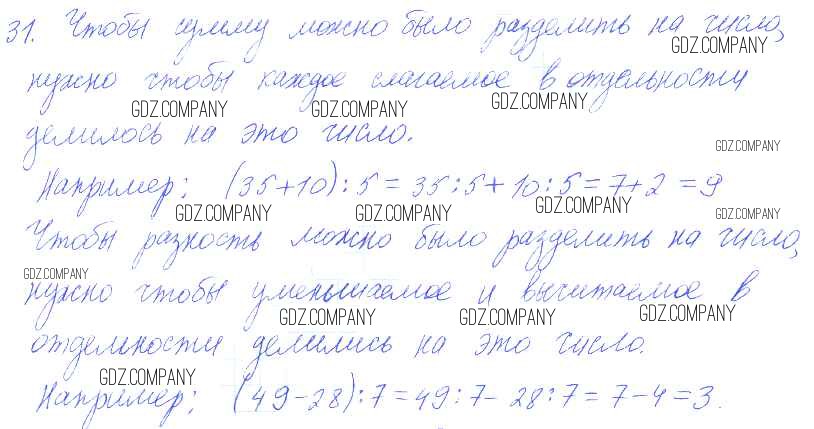 31. Чтобы сумму можно было разделить на число,
GDZ.COMPANY
нужно чтобы каждое слагаемое в отдельности
GDZ.COMPANY GDZ.COMPANY GDZ.COMPANY
делилось на это число.
GDZ.COMPANY
Например: (35+10):5 = 35:5 + 10:5 = 7+2 = 9
GDZ.COMPANY GDZ.COMPANY GDZ.COMPANY GDZ.COMPANY
Чтобы разность можно было разделить на число,
GDZ.COMPANY
нужно чтобы уменьшаемое и вычитаемое в
GDZ.COMPANY GDZ.COMPANY GDZ.COMPANY
отдельности делились на это число.
GDZ.COMPANY
Например: (49-28):7 = 49:7 - 28:7 = 7-4 = 3.